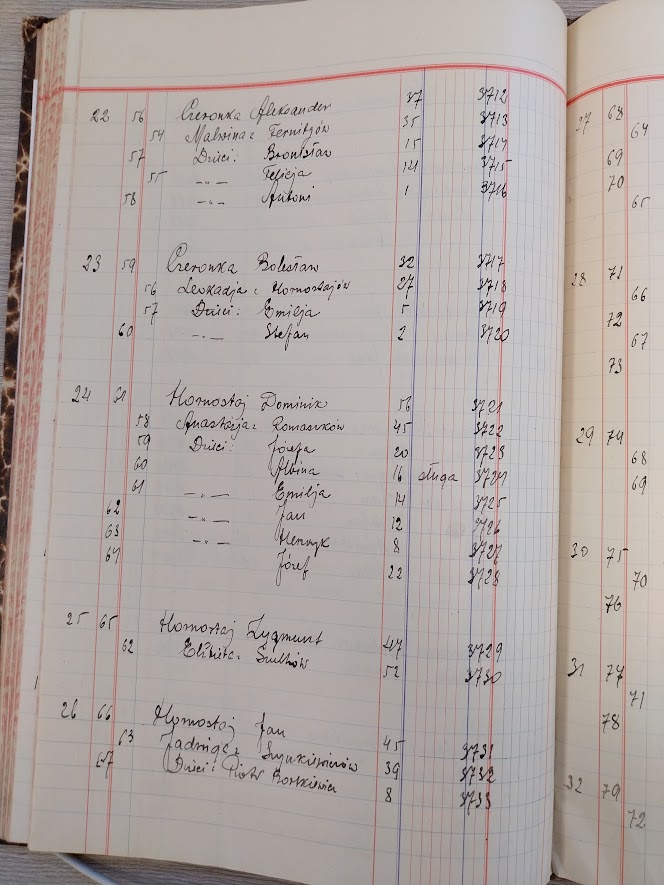 22 56 Czeronka Aleksander 37 3712
54 Malwina z Fernitzów 35 3713
57 Dzieci: Bronisław 15 3714
55 -„- Felicja 14 3715
58 -„- Antoni 1 3716
23 59 Czeronka Bolesław 32 3717
56 Leokadja z Hornostajów 27 3718
57 Dzieci: Emilja 5 3719
60 -„- Stefan 2 3720
24 61 Hornostaj Dominik 56 3721
58 Anastazja z Romaszków 45 3722
59 Dzieci: Józefa 20 3723
60 Albina 16 sługa 3724
61 -„- Emilja 14 3725
62 -„- Jan 12 3726
63 -„- Henryk 8 3727
64 Józef 22 3728
25 65 Hornostaj Zygmunt 47 3729
62 Elżbieta z 52 3730
26 66 Hornostaj Jan 45 3731
63 Jadwiga z 39 3732
67 Dzieci: Piotr Bortkiewicz 8 3733
27 68
64
69
70
65
28 71
66
72
67
73
29 74
68
69
30 75
70
76
31 77
71
78
32 79
72